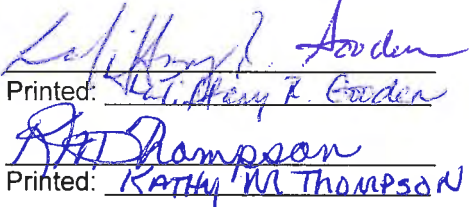 R. Gooden
Printed: La'Tiffany R. Gooden
KM Thompson
Printed: KATHY M THOMPSON